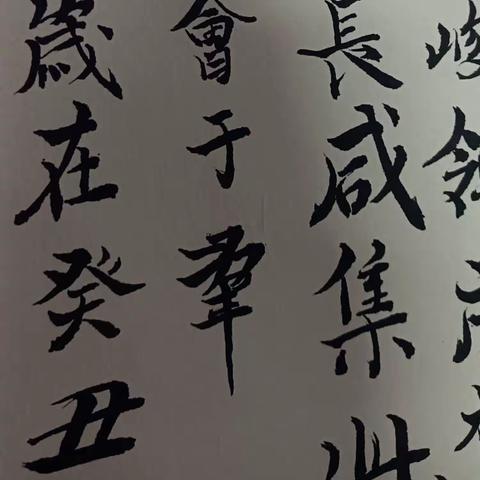 歲在癸丑
會于羣
長咸集此
峻領